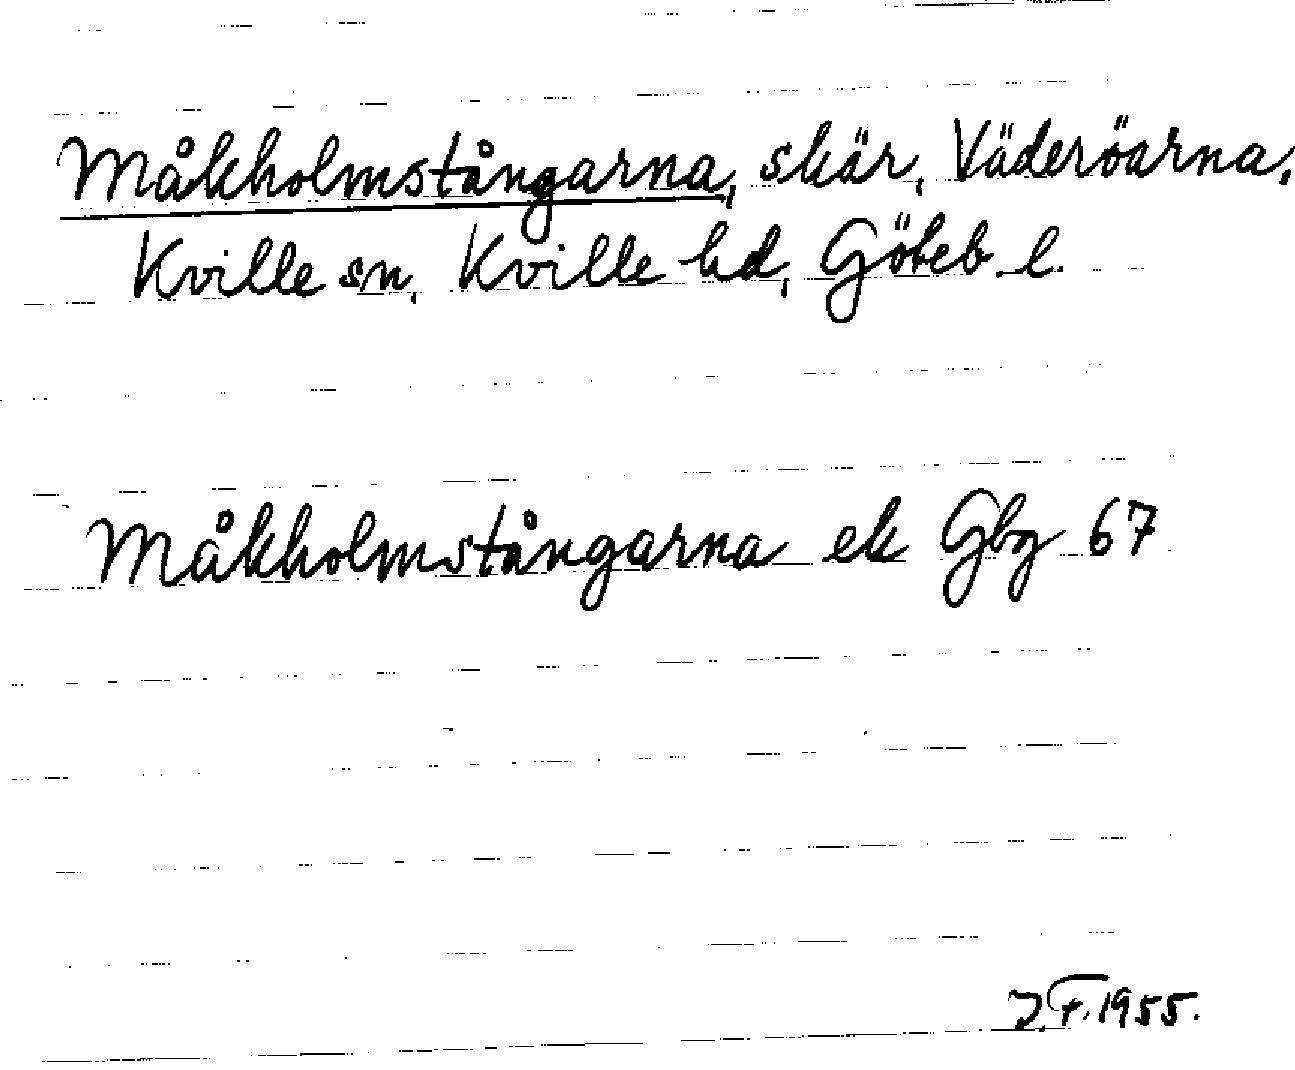 Måkholmstångarna, skär, Väderöarna,
Kville sn, Kville hd, Göteb. l.
Måkholmstångarna ek Gbg 67
J.F. 1955.